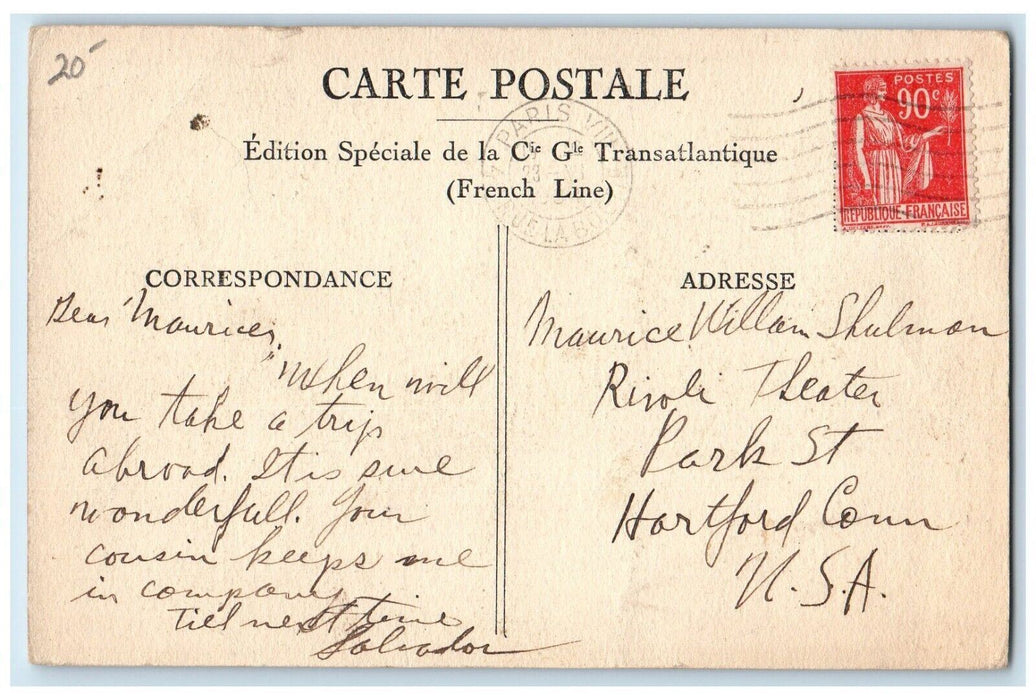 20-
CARTE POSTALE
Édition Spéciale de la Cie Gle Transatlantique
(French Line)
POSTES
90c
RÉPUBLIQUE-FRANÇAISE
PARIS VII
RUE LA BOE
CORRESPONDANCE
Dear Maurice,
"When will
you take a trip
abroad. It is sure
wonderfull. Your
cousin keeps me
in company
Till next time
Salvador
ADRESSE
Maurice Willam Shulman
Rivoli Theater
Park St
Hartford Conn
U.S.A.